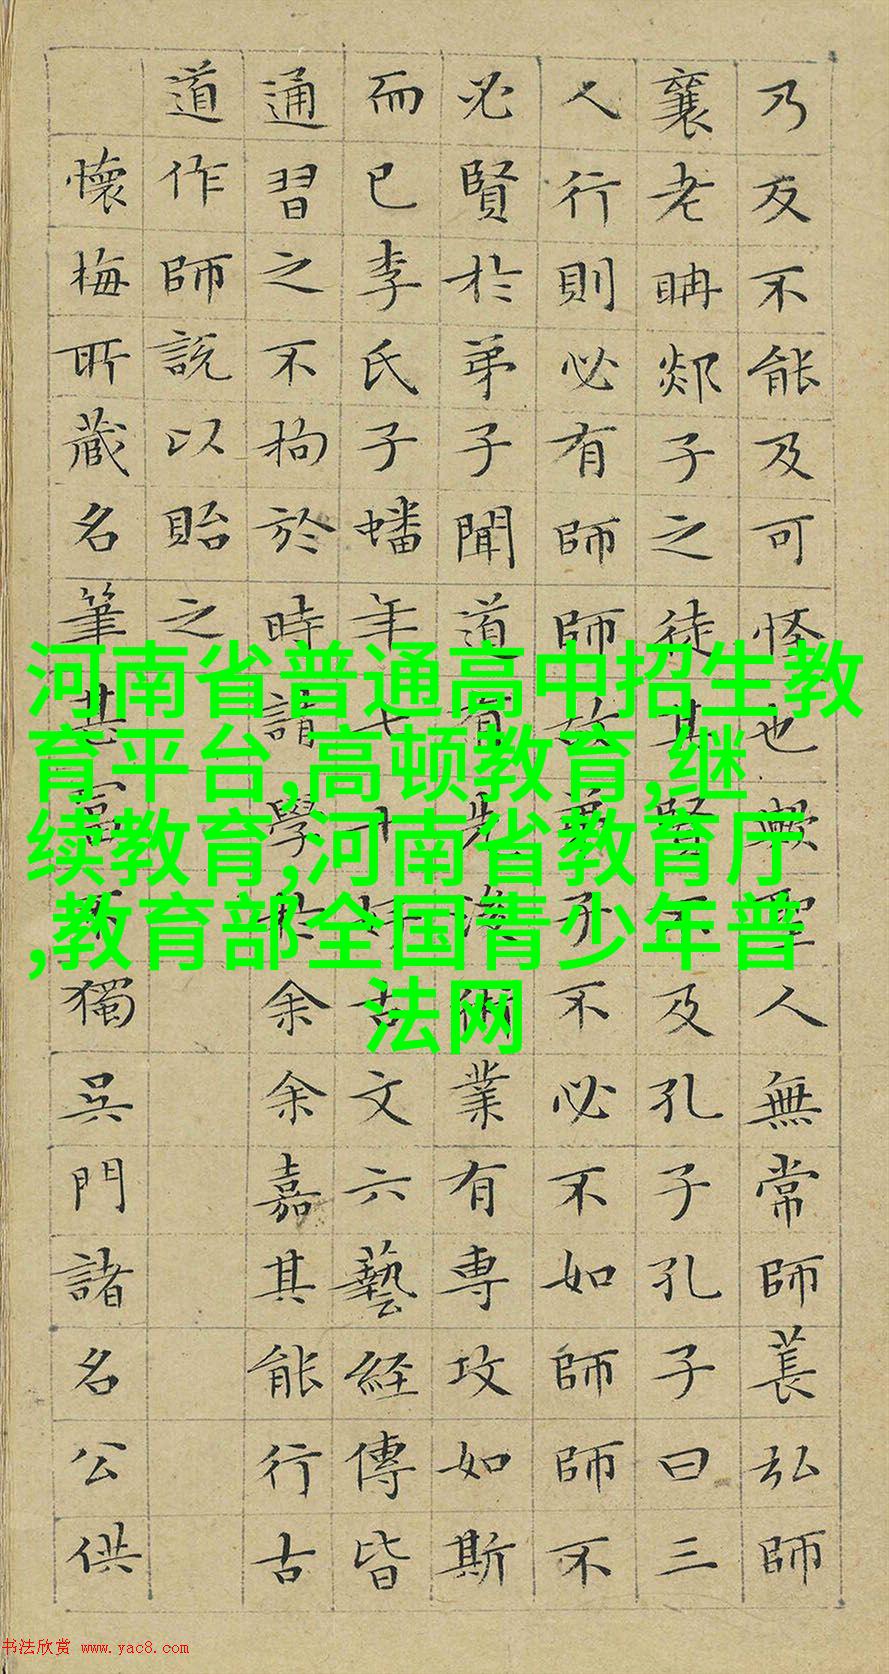 乃反不能及可怪也歟聖人無常師萇弘師
襄老聃郯子之徒其賢不及孔子孔子曰三
人行則必有師師故弟子不必不如師師不
必賢於弟子聞道有先後術業有專攻如斯
而已李氏子蟠年七十好古文六藝経傳皆
通習之不拘於時請學於余余嘉其能行古
道作師說以貽之
懷梅所藏名筆甚富獨吳門諸名公供
河南省普通高中招生教
育平台,高顿教育,继
续教育,河南省教育厅
,教育部全国青少年普
法网
书法欣赏 www.yac8.com